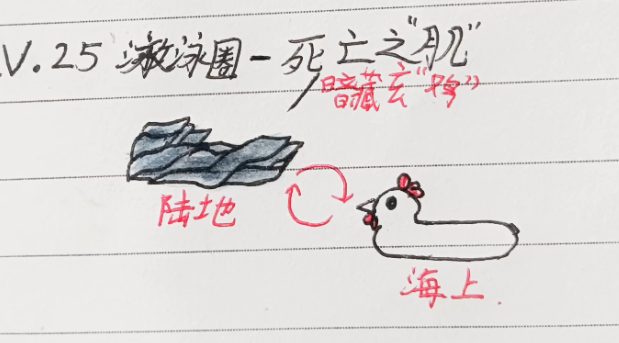 V.25 游泳圈-死亡之"肌"
暗藏玄"鸡"
陆地
海上.